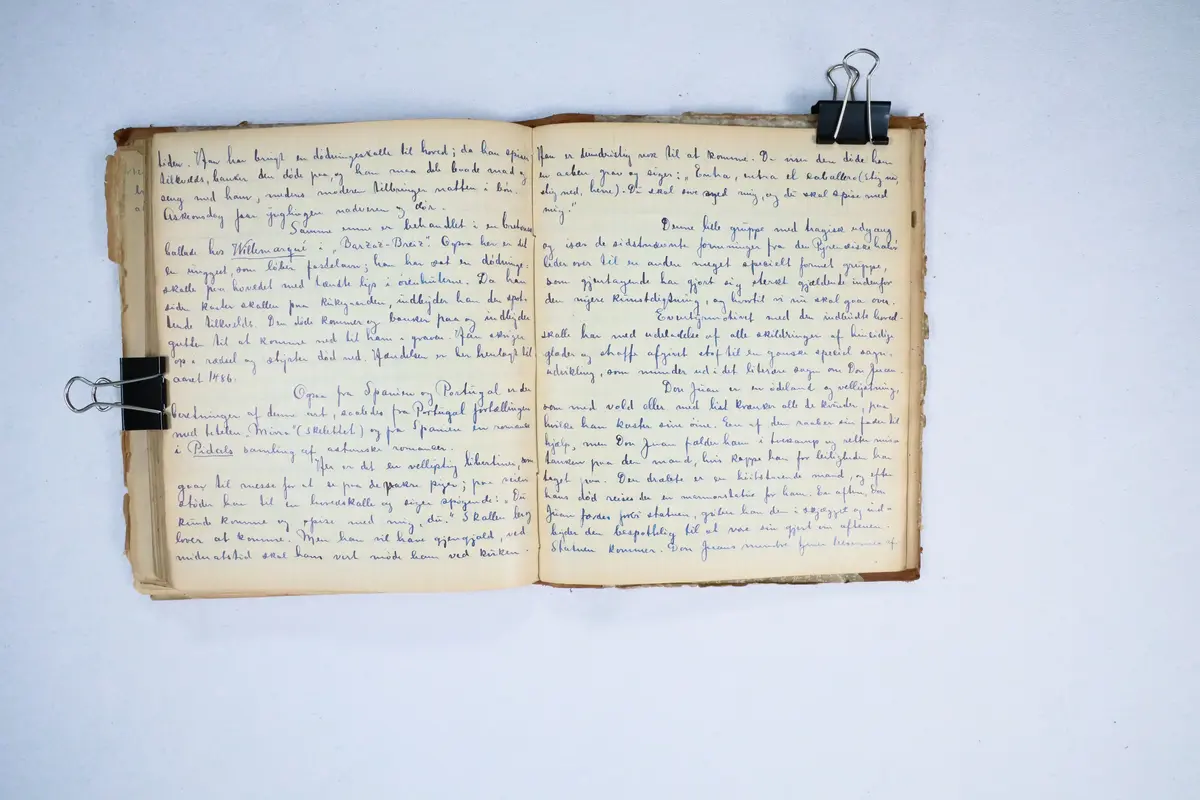 tiden. Han har bragt en dödningeskalle til hoved; da han spiser
tilkvelds, banker den döde paa, og han maa dele baade mad og
seng med ham, medens moderen tilbringer natten i bön.
Askeonsdag faar ynglingen nadveren og dör.
Samme emne er behandlet i en bretonsk
ballade hos Willemarqué i „Barzaz-Breiz". Ogsaa her er det
en unggut, som löber fastelavn; han har sat en dödninge-
skalle paa hovedet med tændte lys i öienhulerne. Da han
siden kaster skallen paa kirkegaarden, indbyder han den spot-
tende tilkvelds. Den döde kommer og banker paa og indbyder
gutten til at komme ned til ham i graven. Han skriger
op i rædsel og styrter död ned. Hændelsen er her henlagt til
aaret 1486.
Ogsaa fra Spanien og Portugal er der
beretninger af denne art, saaledes fra Portugal fortællingen
med titelen „Mirra" (skelettet) og fra Spanien en romance
i Pidals samling af asturiske romancer.
Her er det en vellystig libertiner, som
gaar til messe for at se paa de vakre piger; paa veien
stöder han til en hovedskalle og siger spögende: „Du
kunde komme og spise med mig, du." Skallen
lover at komme. Men han vil have gjengjæld, ved
midnatstid skal hans vert möde ham ved kirken.
Han er dumdristig nok til at komme. Da viser den döde ham
en aaben grav og siger: „Entra, entra el caballero (stig ned,
stig ned, herre). Du skal sove med mig, og du skal spise med
mig."
Denne lille gruppe med tragisk udgang
og især de sidstnævnte formninger fra den Pyrenæiske halvö
leder over til en anden meget specielt formet gruppe,
som gjentagende har gjort sig sterkt gjældende indenfor
den nyere kunstdigtning, og hvortil vi nu skal gaa over.
Eventyrmotivet med den indbudte hoved-
skalle har med udeladelse af alle skildringer af hinsidige
glæder og straffe afgivet stof til en ganske speciel sagn-
udvikling, som munder ud i det literære sagn om Don Juan.
Don Juan er en ödeland og vellystning,
som med vold eller med list krænker alle de kvinder, paa
hvilke han kaster sine öine. En af dem raaber sin fader til
hjælp, men Don Juan fælder ham i tvekamp og retter mis-
tanken paa den mand, hvis kappe han for leiligheden har
taget paa. Den dræbte er en höitstaaende mand, og efter
hans död reises der en marmorstatue for ham. En aften, Don
Juan færdes forbi statuen, griber han den i skjægget og ind-
byder den bespottelig til at være sin gjest om aftenen.
Statuen kommer. Don Juans mindre